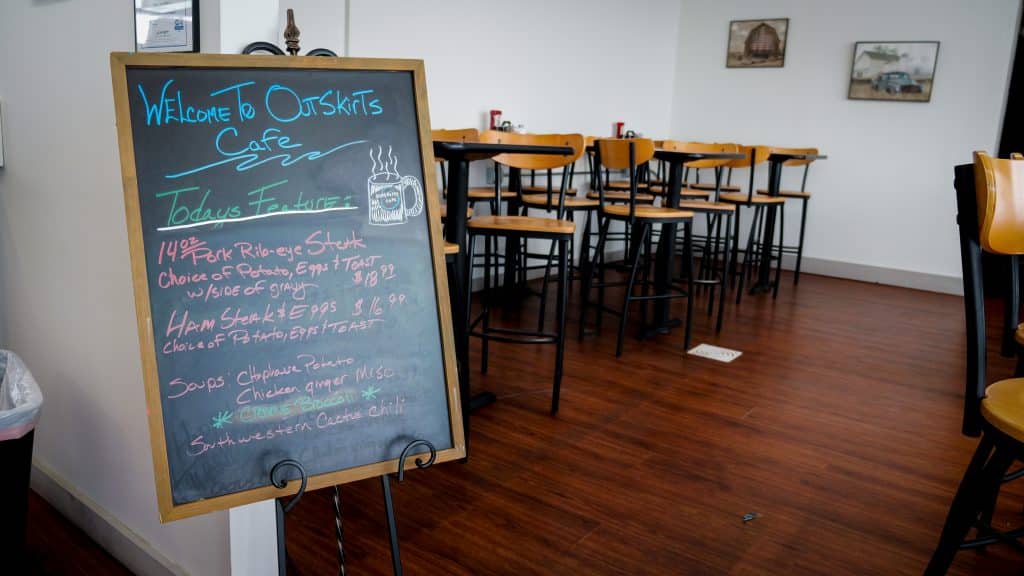 Welcome To OutSkirts
Cafe
Todays Features
14oz Pork Rib-eye Steak
Choice of Potato, Eggs & Toast
w/side of gravy $18.99
Ham Steak & Eggs $16.99
Choice of Potato, Eggs & Toast
Soups: Chophouse Potato
Chicken ginger Miso
Southwestern Cactus Chili